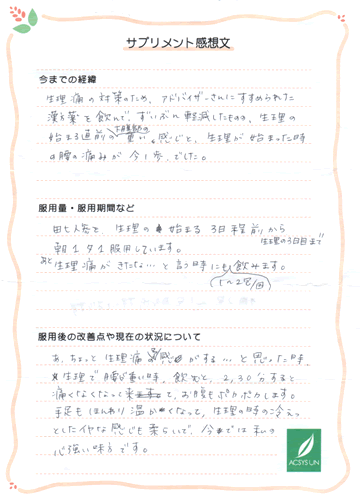 サプリメント感想文
今までの経緯
生理痛の対策のため、アドバイザーさんにすすめられた
漢方薬を飲んで、ずいぶん軽減したものの、生理の
始まる直前の下腹部の重い感じと、生理が始まった時
の腰の痛みが今1歩でした。
服用量・服用期間など
田七人参を 生理の 始まる 3日程前から
朝1夕1服用しています。 生理の3日目まで
あと生理痛がきたな…と言う時にも飲みます。
(1〜2コ/回)
服用後の改善点や現在の状況について
あ、ちょっと生理痛の感じがする…と思った時、
生理で腰が重い時、飲むと、2,30分すると
痛くなくなって来て、お腹もポカポカします。
手足もほんわり温かくなって、生理の時の冷えっ
としたイヤな感じも柔らいで、今では私の
心強い味方です。
ACSYS UN